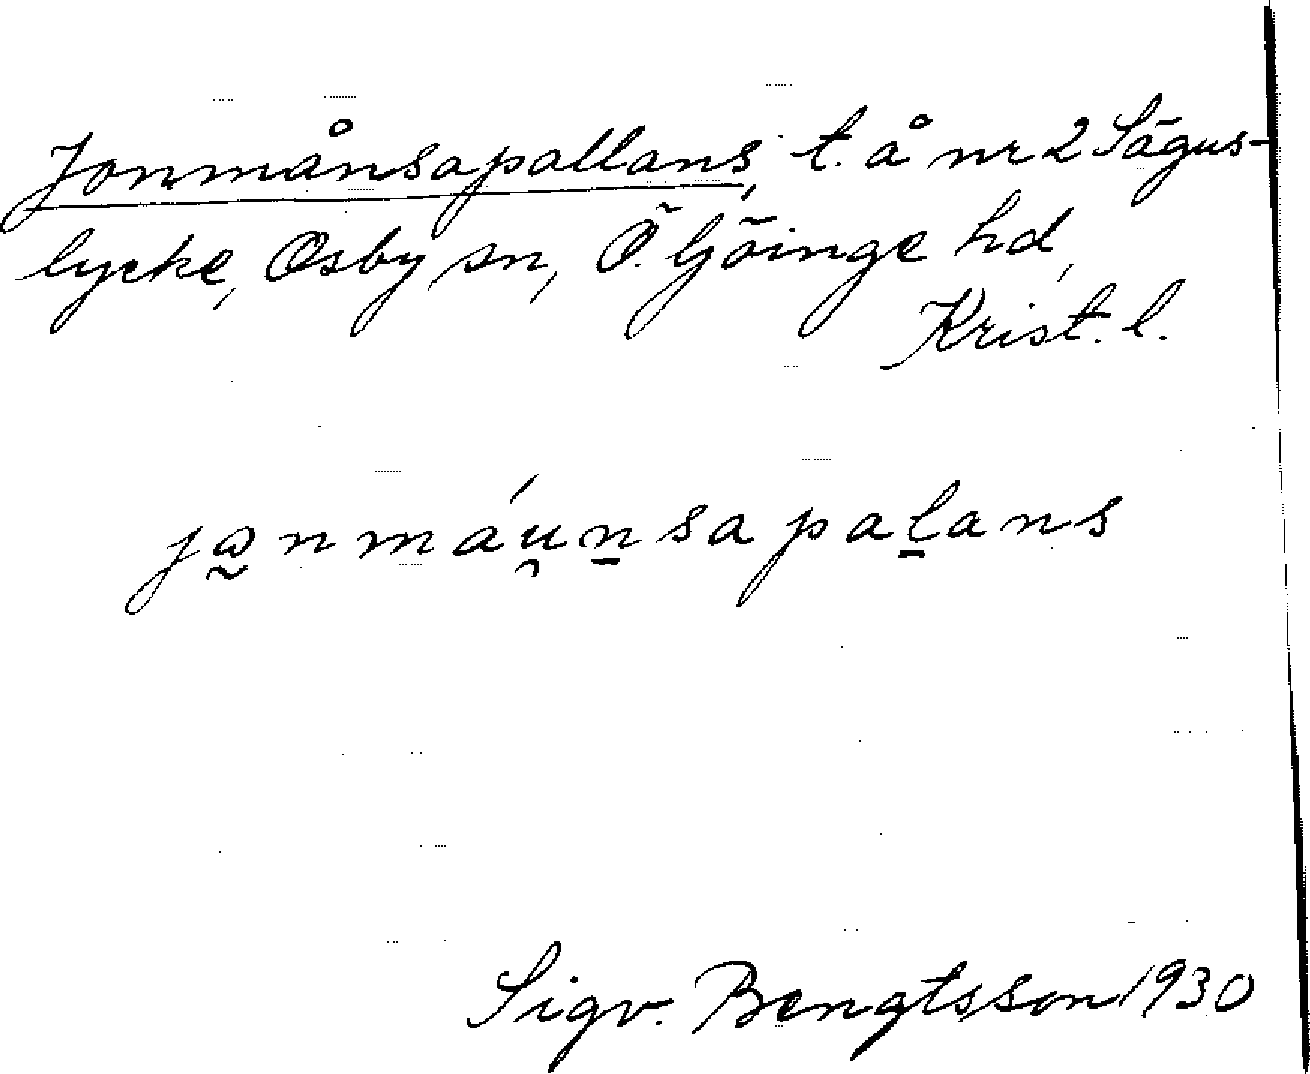 Jonmånsapallans, t. å nr 2 Sägus-
lycke, Osby sn, Ö. Göinge hd,
Krist. l.
jɷ̰nmáu̯n̠sapal̠ans
Sigv. Bengtsson 1930